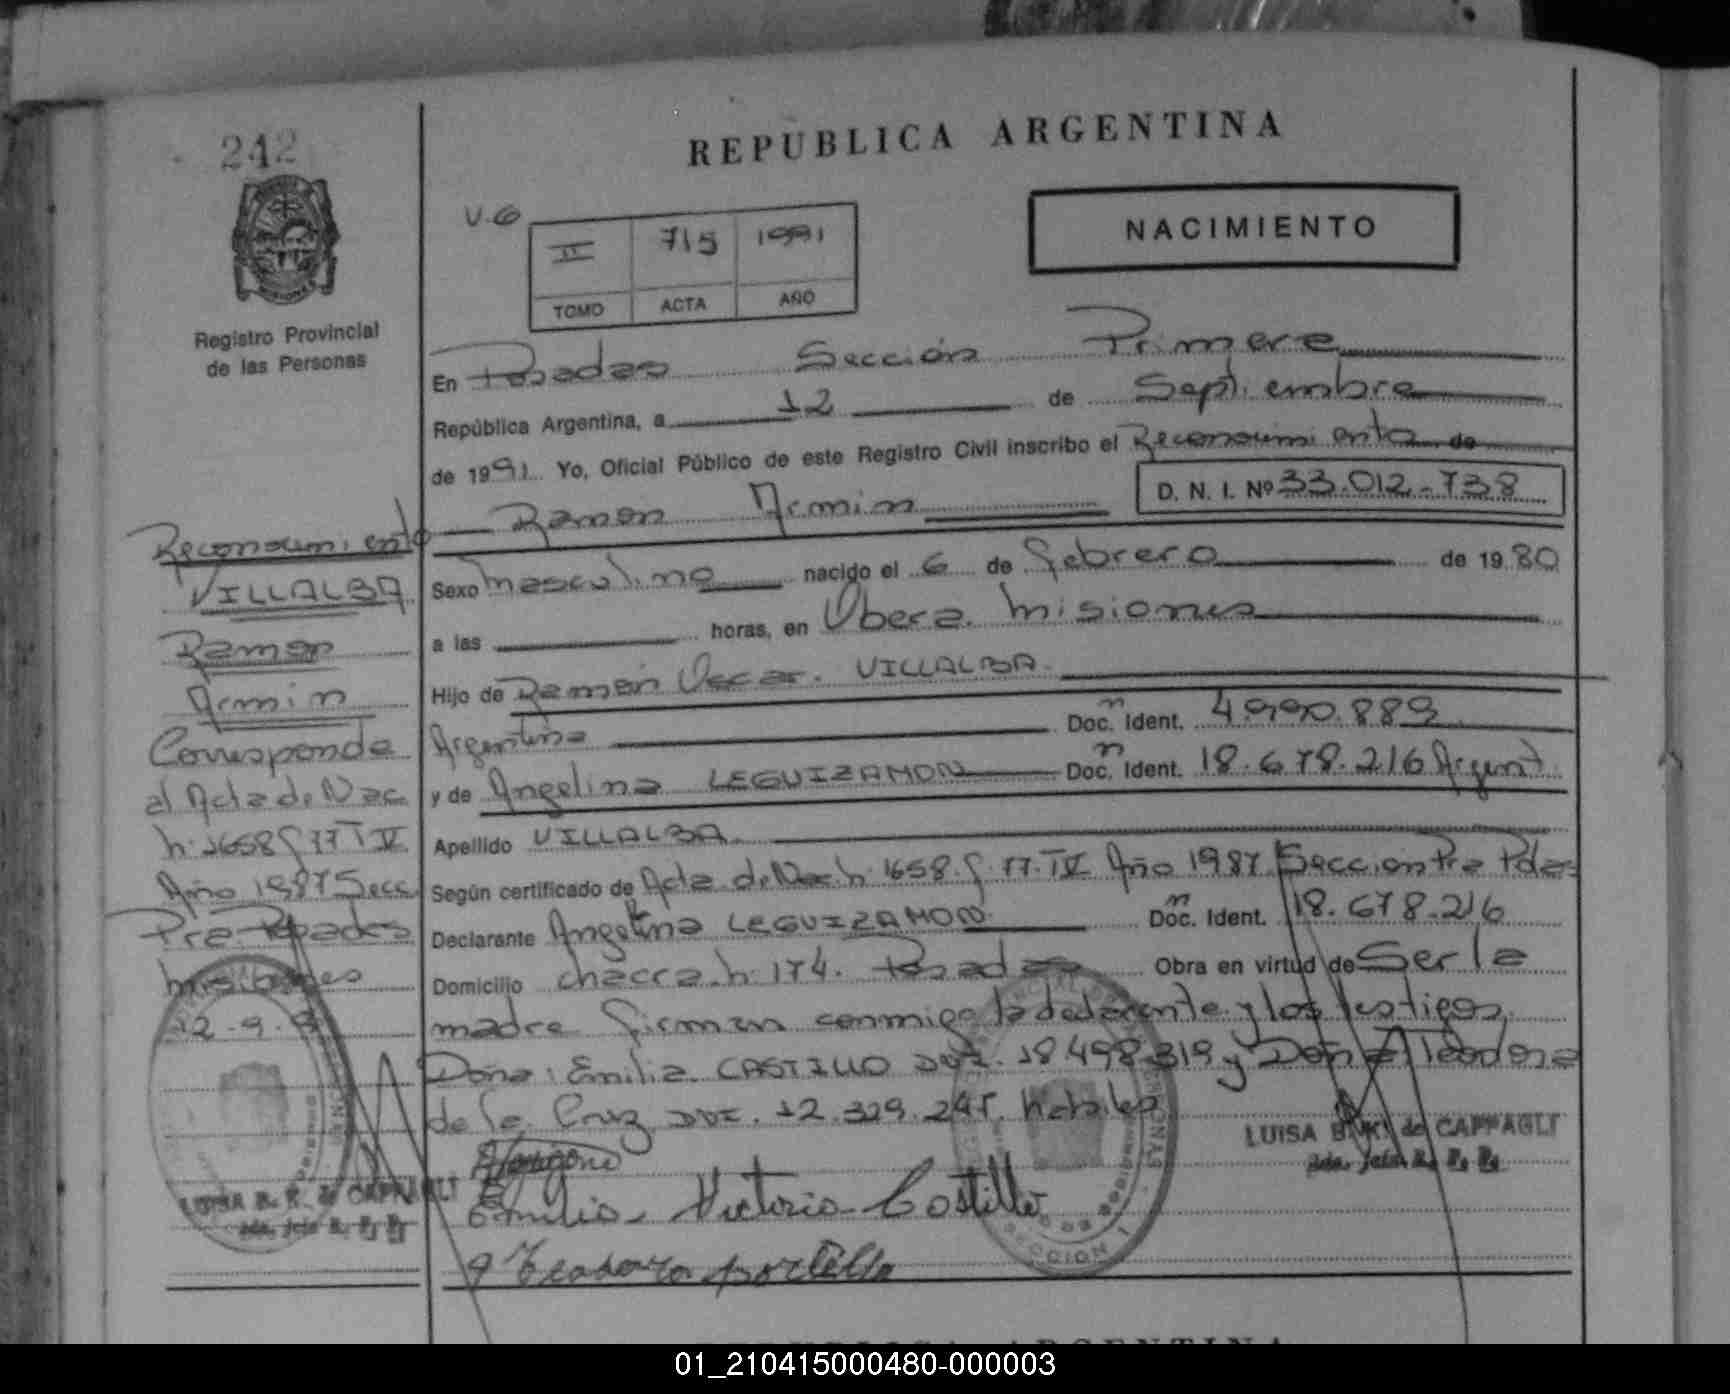 242
REPUBLICA ARGENTINA
Registro Provincial
de las Personas
V.6
II 715 1991
TOMO ACTA AÑO
NACIMIENTO
En Posadas Sección Primera
República Argentina, a 12 de Septiembre
de 1991 Yo, Oficial Público de este Registro Civil inscribo el Reconocimiento de
D. N. I. Nº 33.012.738
Ramon Armin
Sexo Masculino nacido el 6 de febrero de 1980
a las horas, en Obera. Misiones
Hijo de Ramón Oscar. VILLALBA.
Argentina Doc. Ident. 4.990.889
y de Angelina LEGUIZAMON Doc. Ident. 18.678.216 Argent.
Apellido VILLALBA
Según certificado de Acta de Nac. N. 1658. f. 77. T IV Año 1987. Sección Pra Pdas
Declarante Angelina LEGUIZAMON. Doc. Ident. 18.678.216
Domicilio chacra. N. 174. Posadas Obra en virtud de Ser la
madre firman conmigo la declarante y los testigos.
Doña: Emilia CASTILLO DNI. 18498319 y Doña Teodora
de la Cruz DNI. 12.329.245. habiles
Emilia Victoria Castillo
Teodora portillo
LUISA B. K. de CAPPAGLI
Reconocimiento
VILLALBA
Ramon
Armin
Corresponde
al Acta de Nac.
N. 1658 f 77 T IV
Año 1987 Secc.
Pra Posadas
Misiones
12.9.91
LUISA B. K. de CAPPAGLI
SECCION 1
REPUBLICA ARGENTINA
01_210415000480-000003